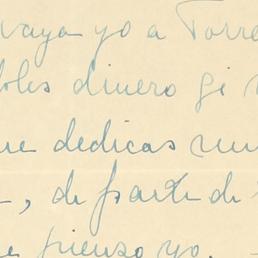 vaya yo a Torre
dobles dinero si
ue dedicas mu
, de parte de
e pienso yo.